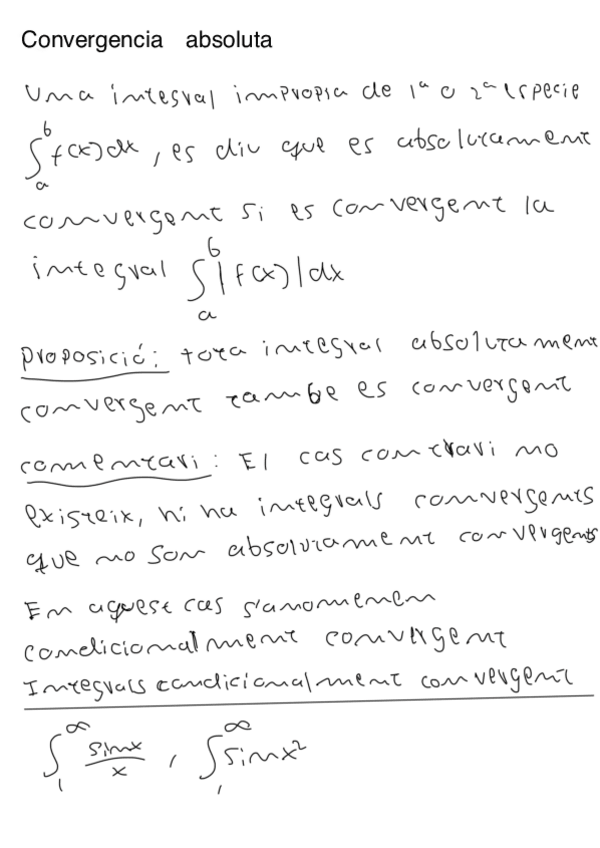 Convergencia absoluta
Una integral impropia de 1ª o 2ª especie
∫_a^b f(x)dx, es diu que es absolutament
convergent si es convergent la
integral ∫_a^b |f(x)|dx
Proposició: tota integral absolutament
convergent tambe es convergent
comentari: El cas contrari no
existeix, hi ha integrals convergents
que no son absolutament convergents
En aquest cas s'anomenen
condicionalment convergent
Integrals condicionalment convergent
∫_1^∞ sinx/x , ∫_1^∞ sinx²